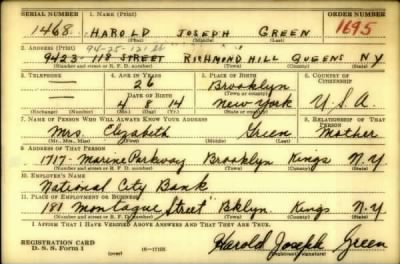 SERIAL NUMBER 1. NAME (Print) ORDER NUMBER
1468 HAROLD JOSEPH GREEN 1695
(First) (Middle) (Last)
2. ADDRESS (Print) 94-25-121 St
9423-118 STREET RICHMOND HILL QUEENS NY
(Number and street or R. F. D. number) (Town) (County) (State)
3. TELEPHONE 4. AGE IN YEARS 5. PLACE OF BIRTH 6. COUNTRY OF CITIZENSHIP
26 Brooklyn
DATE OF BIRTH (Town or county)
4 8 14 New York U.S.A.
(Exchange) (Number) (Mo.) (Day) (Yr.) (State or country)
7. NAME OF PERSON WHO WILL ALWAYS KNOW YOUR ADDRESS 8. RELATIONSHIP OF THAT PERSON
Mrs. Elizabeth Green Mother
(Mr., Mrs., Miss) (First) (Middle) (Last)
9. ADDRESS OF THAT PERSON
1717- Marine Parkway Brooklyn Kings N.Y
(Number and street or R. F. D. number) (Town) (County) (State)
10. EMPLOYER'S NAME
National City Bank
11. PLACE OF EMPLOYMENT OR BUSINESS
181 Montague Street Bklyn. Kings N.Y
(Number and street or R. F. D. number) (Town) (County) (State)
I AFFIRM THAT I HAVE VERIFIED ABOVE ANSWERS AND THAT THEY ARE TRUE.
REGISTRATION CARD
D. S. S. Form 1 (over) 16-17105 Harold Joseph Green
(Registrant's signature)